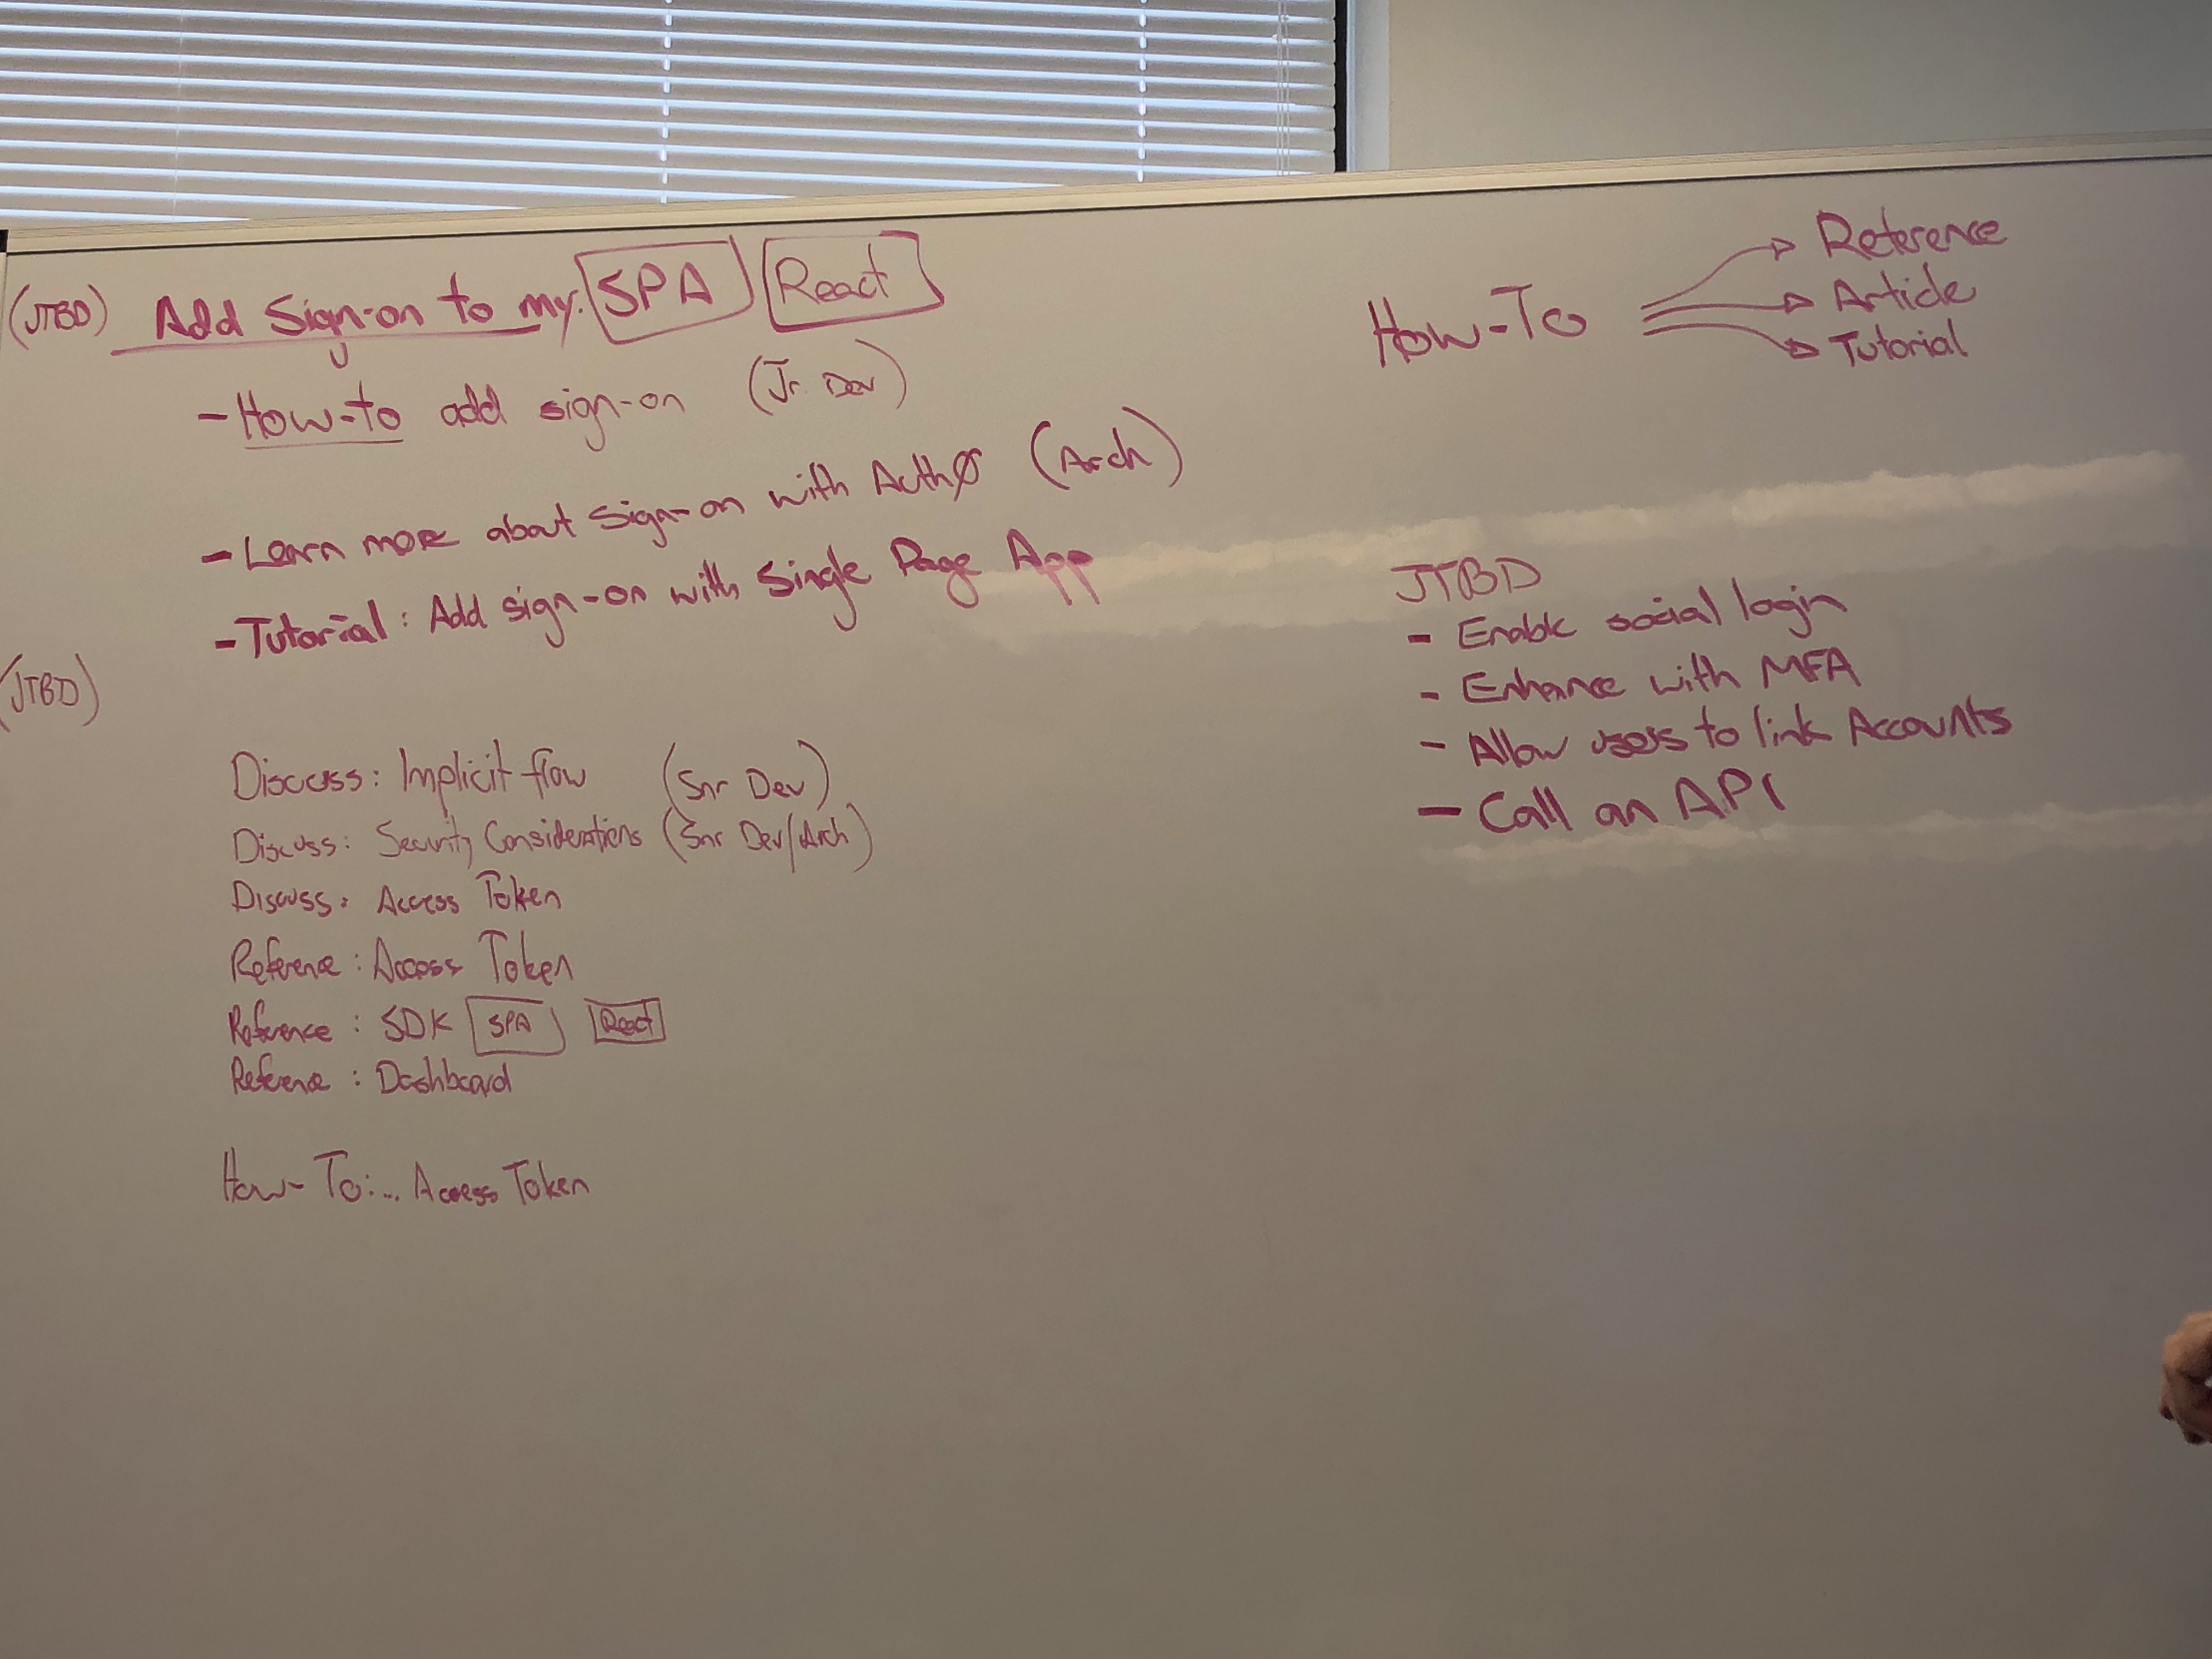 (JTBD) Add Sign-on to my: SPA React
- How-to add sign-on (Jr. Dev)
- Learn more about Sign-on with Auth0 (Arch)
- Tutorial: Add sign-on with Single Page App
(JTBD)
Discuss: Implicit flow (Snr Dev)
Discuss: Security Considerations (Snr Dev/Arch)
Discuss: Access Token
Reference: Access Token
Reference: SDK SPA React
Reference: Dashboard
How-To:... Access Token
How-To
Reference
Article
Tutorial
JTBD
- Enable social login
- Enhance with MFA
- Allow users to link Accounts
- Call an API